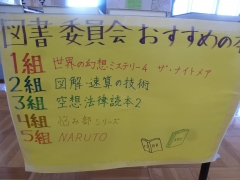 図書委員会おすすめの本
1組 世界の幻想ミステリー4 ザ・ナイトメア
2組 図解・速算の技術
3組 空想法律読本2
4組 悩み部シリーズ
5組 NARUTO